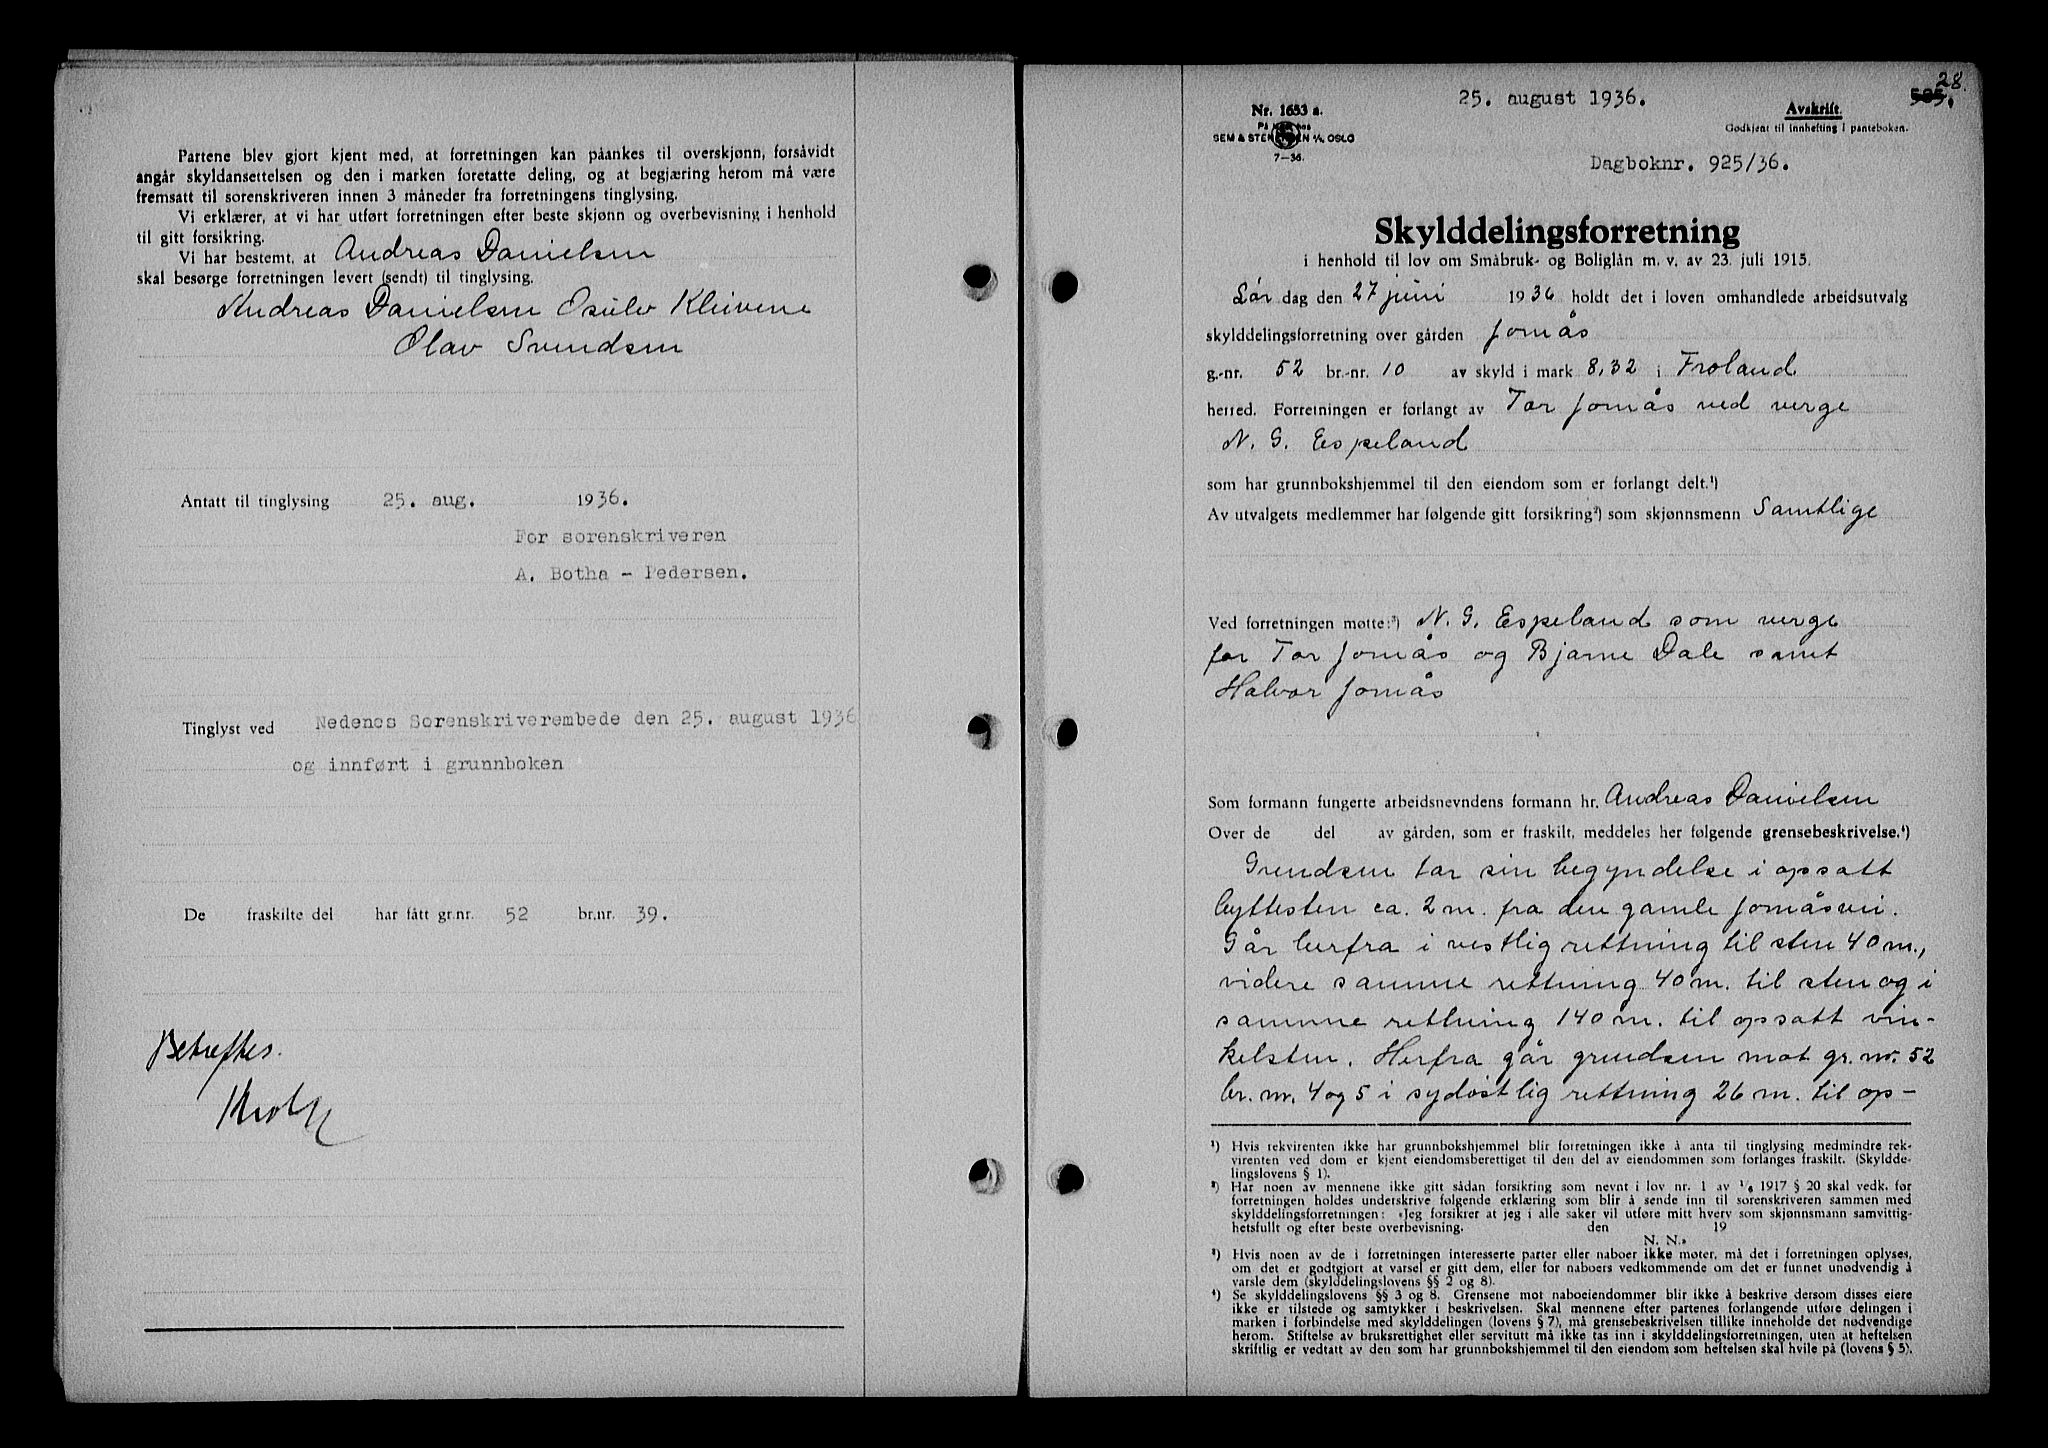 Partene blev gjort kjent med, at forretningen kan påankes til overskjønn, forsåvidt
angår skyldansettelsen og den i marken foretatte deling, og at begjæring herom må være
fremsatt til sorenskriveren innen 3 måneder fra forretningens tinglysing.
Vi erklærer, at vi har utført forretningen efter beste skjønn og overbevisning i henhold
til gitt forsikring.
Vi har bestemt, at Andreas Danielsen
skal besørge forretningen levert (sendt) til tinglysing.
Andreas Danielsen Osulv Kleivene
Olav Svendsen
Antatt til tinglysing 25. aug. 1936.
For sorenskriveren
A. Botha - Pedersen.
Tinglyst ved Nedenes Sorenskriverembede den 25. august 1936
og innført i grunnboken
De fraskilte del har fått gr.nr. 52 br.nr. 39.
Betreftes.
28.
25. august 1936.
505.
Nr. 1653 a.
SEM & STENERSEN A/S OSLO
7-36.
Avskrift.
Godkjent til innhefting i panteboken.
Dagboknr. 925/36.
Skylddelingsforretning
i henhold til lov om Småbruk- og Boliglån m. v. av 23. juli 1915.
Lør dag den 27 juni 1936 holdt det i loven omhandlede arbeidsutvalg
skylddelingsforretning over gården Jomås
g.-nr. 52 br.-nr. 10 av skyld i mark 8,32 i Froland
herred. Forretningen er forlangt av Tor Jomås ved verge
N. G. Espeland
som har grunnbokshjemmel til den eiendom som er forlangt delt.¹)
Av utvalgets medlemmer har følgende gitt forsikring²) som skjønnsmenn Samtlige
Ved forretningen møtte:³) N. G. Espeland som verge
for Tor Jomås og Bjarne Dale samt
Halvor Jomås
Som formann fungerte arbeidsnevndens formann hr. Andreas Danielsen
Over de del av gården, som er fraskilt, meddeles her følgende grensebeskrivelse.⁴)
Grendsen tar sin begyndelse i opsatt
byttesten ca. 2 m. fra den gamle Jomåsvei.
Går herfra i vestlig rettning til sten 40 m.,
videre samme rettning 40 m. til sten og i
samme rettning 140 m. til opsatt vin-
kelsten. Herfra går grendsen mot gr. nr. 52
br. nr. 4 og 5 i sydøstlig rettning 26 m. til op-
¹) Hvis rekvirenten ikke har grunnbokshjemmel blir forretningen ikke å anta til tinglysing medmindre rek-
virenten ved dom er kjent eiendomsberettiget til den del av eiendommen som forlanges fraskilt. (Skyldde-
lingslovens § 1).
²) Har noen av mennene ikke gitt sådan forsikring som nevnt i lov nr. 1 av 1/6 1917 § 20 skal vedk. før
forretningen holdes underskrive følgende erklæring som blir å sende inn til sorenskriveren sammen med
skylddelingsforretningen: »Jeg forsikrer at jeg i alle saker vil utføre mitt hverv som skjønnsmann samvittig-
hetsfullt og efter beste overbevisning. den 19
N. N.»
³) Hvis noen av de i forretningen interesserte parter eller naboer ikke møter, må det i forretningen oplyses,
om det er godtgjort at varsel er gitt dem, eller for naboers vedkommende om det er funnet unødvendig å
varsle dem (skylddelingslovens §§ 2 og 8).
⁴) Se skylddelingslovens §§ 3 og 8. Grensene mot naboeiendommer blir ikke å beskrive dersom disses eiere
ikke er tilstede og samtykker i beskrivelsen. Skal mennene efter partenes forlangende utføre delingen i
marken i forbindelse med skylddelingen (lovens § 7), må grensebeskrivelsen tillike inneholde det nødvendige
herom. Stiftelse av bruksrettighet eller servitutt må ikke tas inn i skylddelingsforretningen, uten at heftelsen
skriftlig er vedtatt av den som har grunnbokshjemmel til den eiendom som heftelsen skal hvile på (lovens § 5).